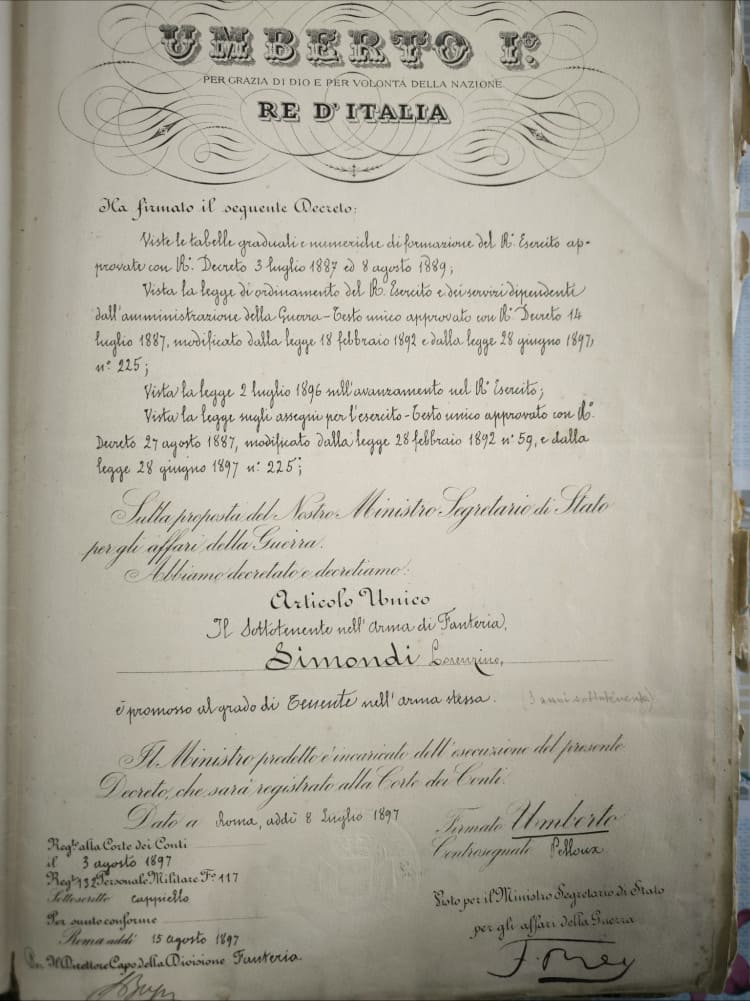 UMBERTO Iº
PER GRAZIA DI DIO E PER VOLONTÀ DELLA NAZIONE
RE D'ITALIA
Ha firmato il seguente Decreto:
Viste le tabelle graduali e numeriche di formazione del Rº. Esercito ap-
provate con Rº. Decreto 3 luglio 1887 ed 8 agosto 1889;
Vista la legge di ordinamento del R. Esercito e dei servizi dipendenti
dall'amministrazione della Guerra-Testo unico approvato con Rº. Decreto 14
luglio 1887, modificato dalla legge 18 febbraio 1892 e dalla legge 28 giugno 1897,
nº. 225;
Vista la legge 2 luglio 1896 sull'avanzamento nel Rº. Esercito;
Vista la legge sugli assegni per l'esercito-Testo unico approvato con Rº.
Decreto 27 agosto 1887, modificato dalla legge 28 febbraio 1892 nº 59, e dalla
legge 28 giugno 1897 nº. 225;
Sulla proposta del Nostro Ministro Segretario di Stato
per gli affari della Guerra.
Abbiamo decretato e decretiamo:
Articolo Unico
Il Sottotenente nell'arma di Fanteria,
Simondi Lorenzino,
è promosso al grado di Tenente nell'arma stessa. (3 anni sottotenente)
Il Ministro predetto è incaricato dell'esecuzione del presente
Decreto, che sarà registrato alla Corte dei Conti.
Dato a Roma, addì 8 Luglio 1897
Firmato Umberto
Controsegnato Pelloux
Reg.to alla Corte dei Conti
il 3 agosto 1897
Reg.º 132 Personale Militare Fº. 117
Sottoscritto Cappiello
Per sunto conforme
Roma addì 15 agosto 1897
Per Il Direttore Capo della Divisione Fanteria.
Visto per il Ministro Segretario di Stato
per gli affari della Guerra